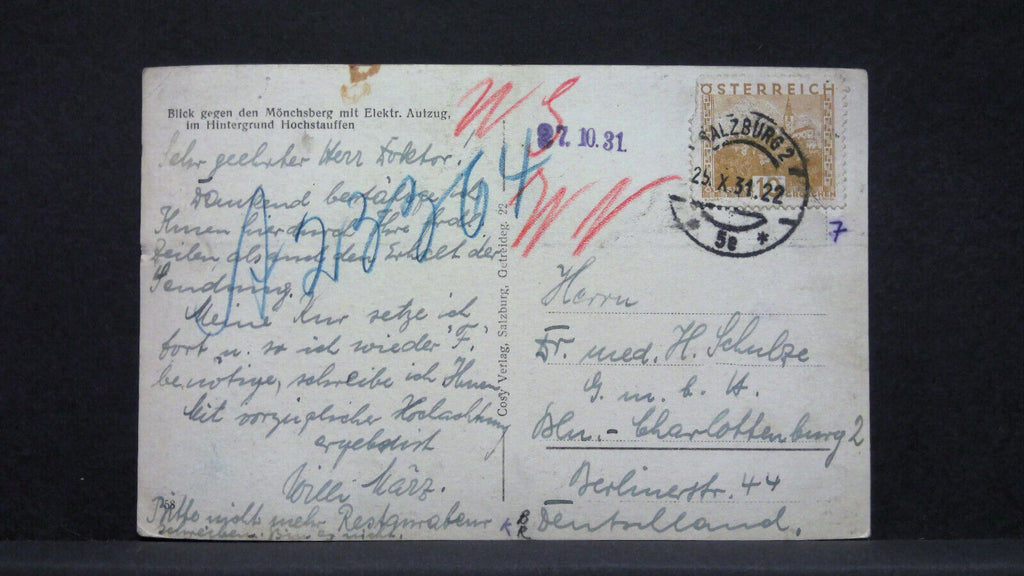 Blick gegen den Mönchsberg mit Elektr. Aufzug,
im Hintergrund Hochstauffen
Sehr geehrter Herr Doktor.
Dankend bestätige ich
Ihnen hierdurch Ihre
Zeilen als auch den Erhalt der
Sendung.
Meine Kur setze ich
fort u. so ich wieder "F."
benötige, schreibe ich Ihnen
Mit vorzüglicher Hochachtung
ergebenst
Willi März.
Bitte nicht mehr Restaurateur
schreiben. Bin es nicht.
A 23364
Cosy Verlag, Salzburg, Getreideg. 22
W S
27. 10. 31.
W W
ÖSTERREICH
10
SALZBURG 2
25.X.31.22
* 5e *
7
Herrn
Dr. med. H. Schulze
G. m. b. H.
Bln.- Charlottenburg 2
Berlinerstr. 44
Deutschland.
K B
R